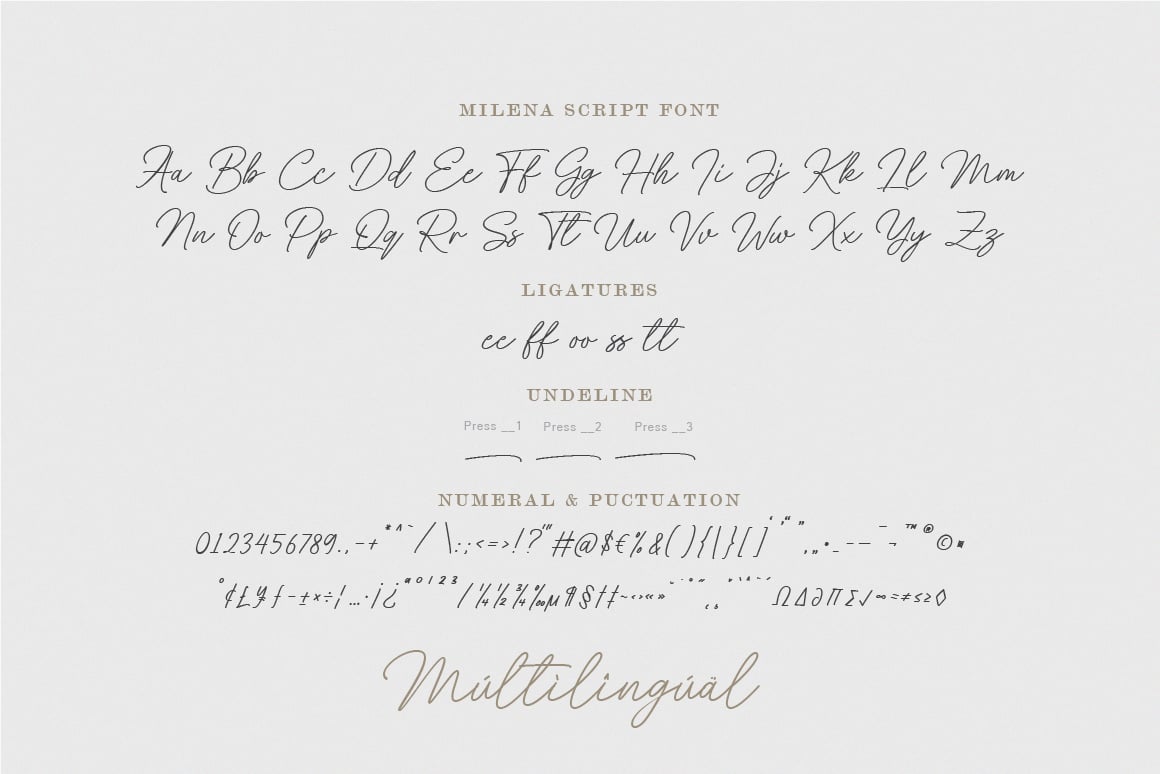 MILENA SCRIPT FONT
Aa Bb Cc Dd Ee Ff Gg Hh Ii Jj Kk Ll Mm
Nn Oo Pp Qq Rr Ss Tt Uu Vv Ww Xx Yy Zz
LIGATURES
ee ff oo ss tt
UNDELINE
Press __1 Press __2 Press __3
NUMERAL & PUCTUATION
0123456789.,-+*^~/\:;<=>!?'"#@$€%&(){|}[]‘’“”‚„•_–—¯¬™®©¤
°¢£¥ƒ-±×÷¦…·¡¿ªº¹²³/¼½¾‰µ¶§†‡~‹›«»
ΩΔ∂∏∑√∞≈≠≤≥◊
Múltìlîngúäl